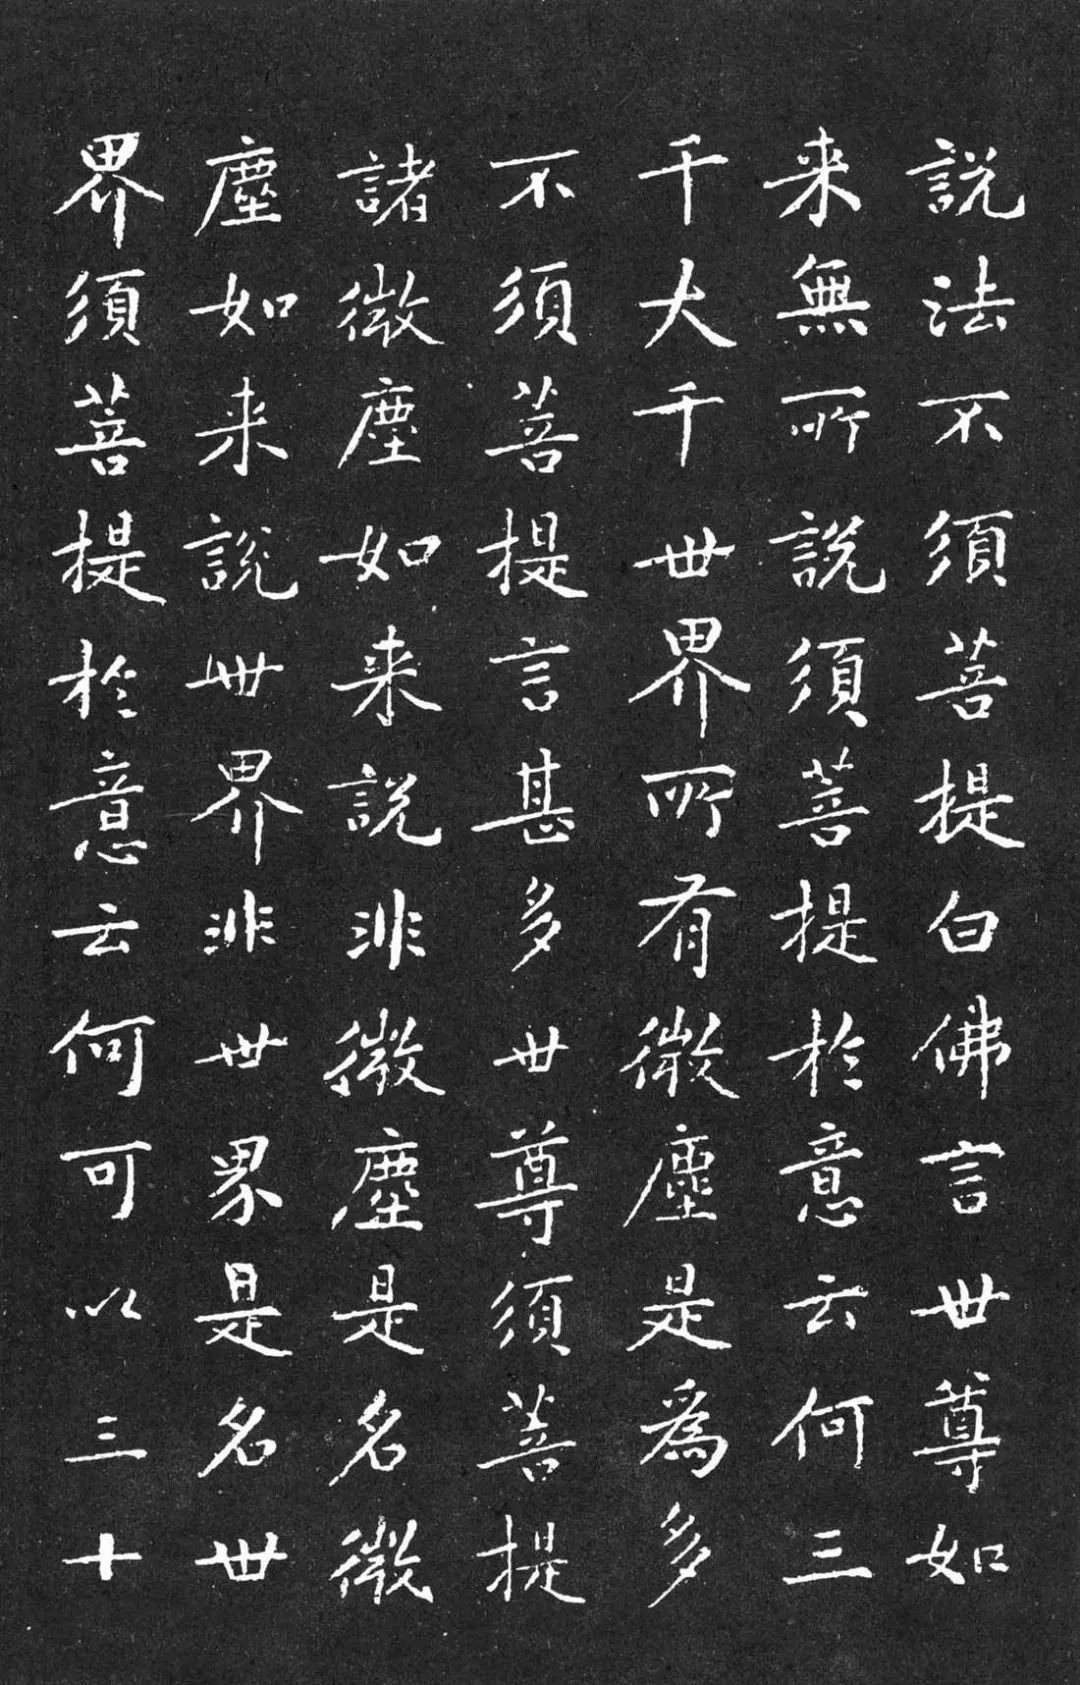 說法不須菩提白佛言世尊如
来無所說須菩提於意云何三
千大千世界所有微塵是為多
不須菩提言甚多世尊須菩提
諸微塵如来說非微塵是名微
塵如来說世界非世界是名世
界須菩提於意云何可以三十